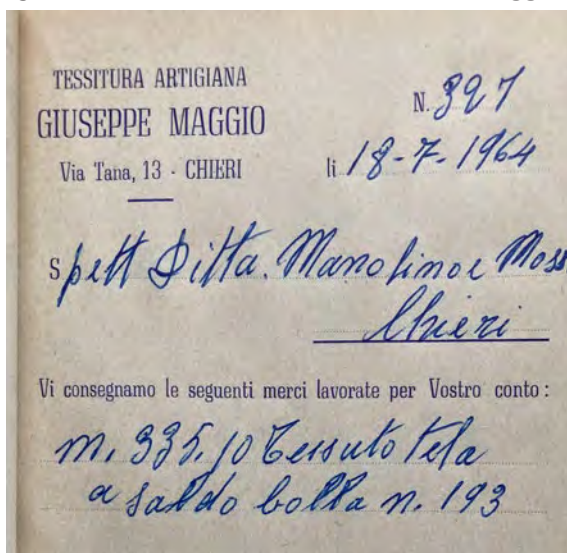 TESSITURA ARTIGIANA
GIUSEPPE MAGGIO
Via Tana, 13 - CHIERI
N. 327
li 18-7-1964
Spett Ditta. Manolino e Moss
Chieri
Vi consegnamo le seguenti merci lavorate per Vostro conto :
m. 335,10 Tessuto tela
a saldo bolla n. 193